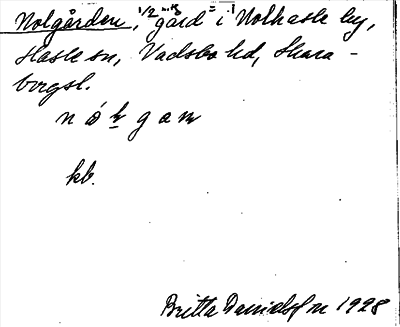 Nolgården, 1/2 gård i Nolhasle by,
Hasle sn, Vadsbo hd, Skara-
borgsl.
kb.
Britta Danielson 1928